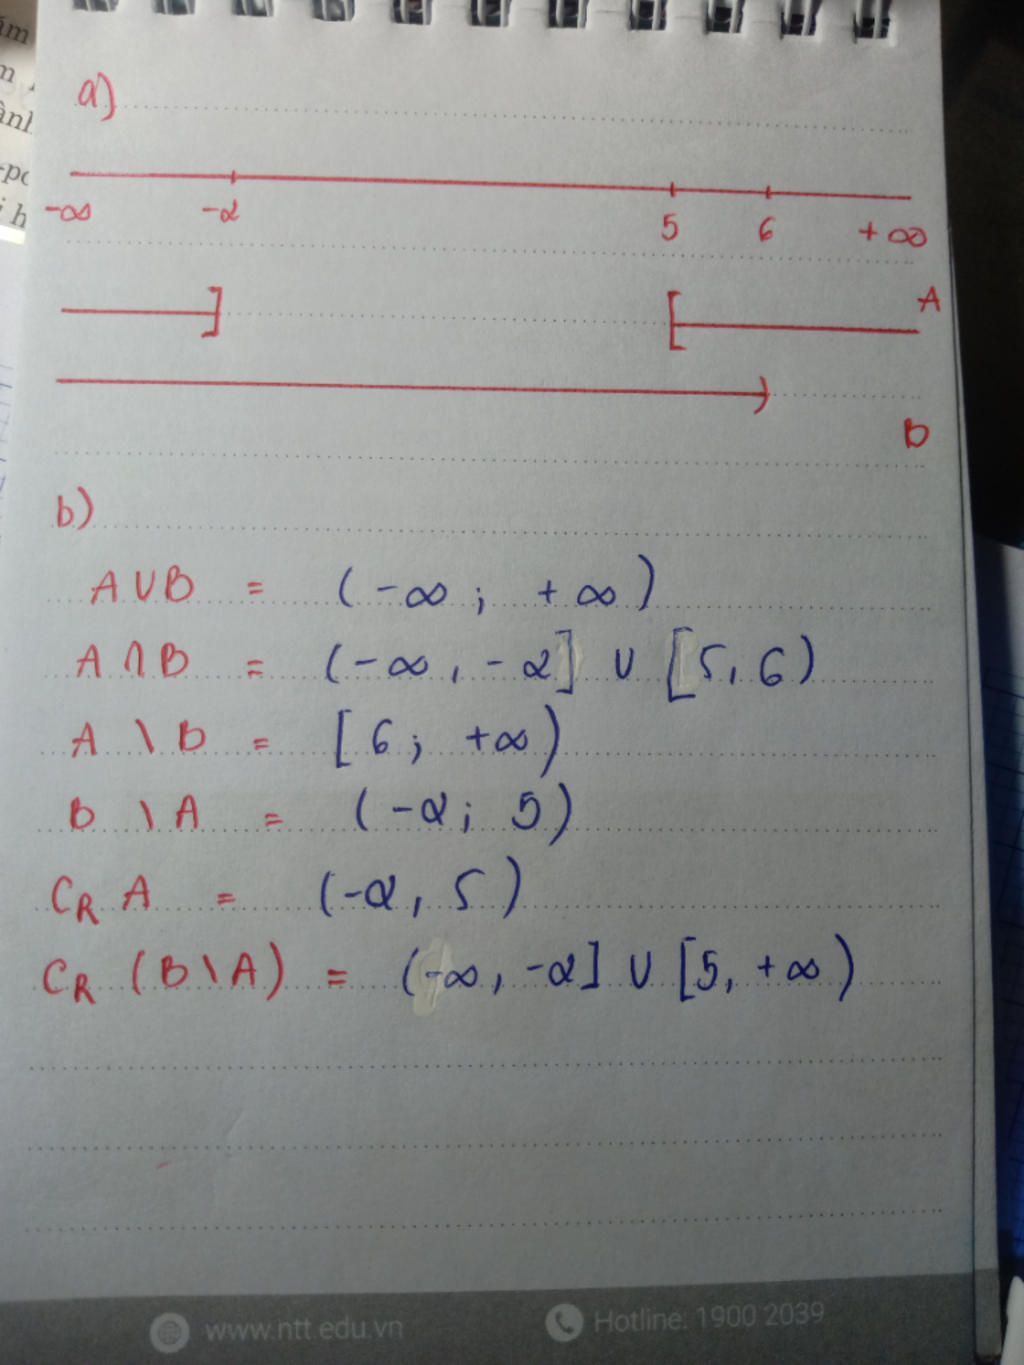 a)
-∞ -2 5 6 +∞
] [ A
) B
b)
A∪B = (-∞; +∞)
A∩B = (-∞, -2] ∪ [5, 6)
A \ B = [6; +∞)
B \ A = (-2; 5)
C_R A = (-2, 5)
C_R (B\A) = (-∞, -2] ∪ [5, +∞)
www.ntt.edu.vn Hotline: 1900 2039